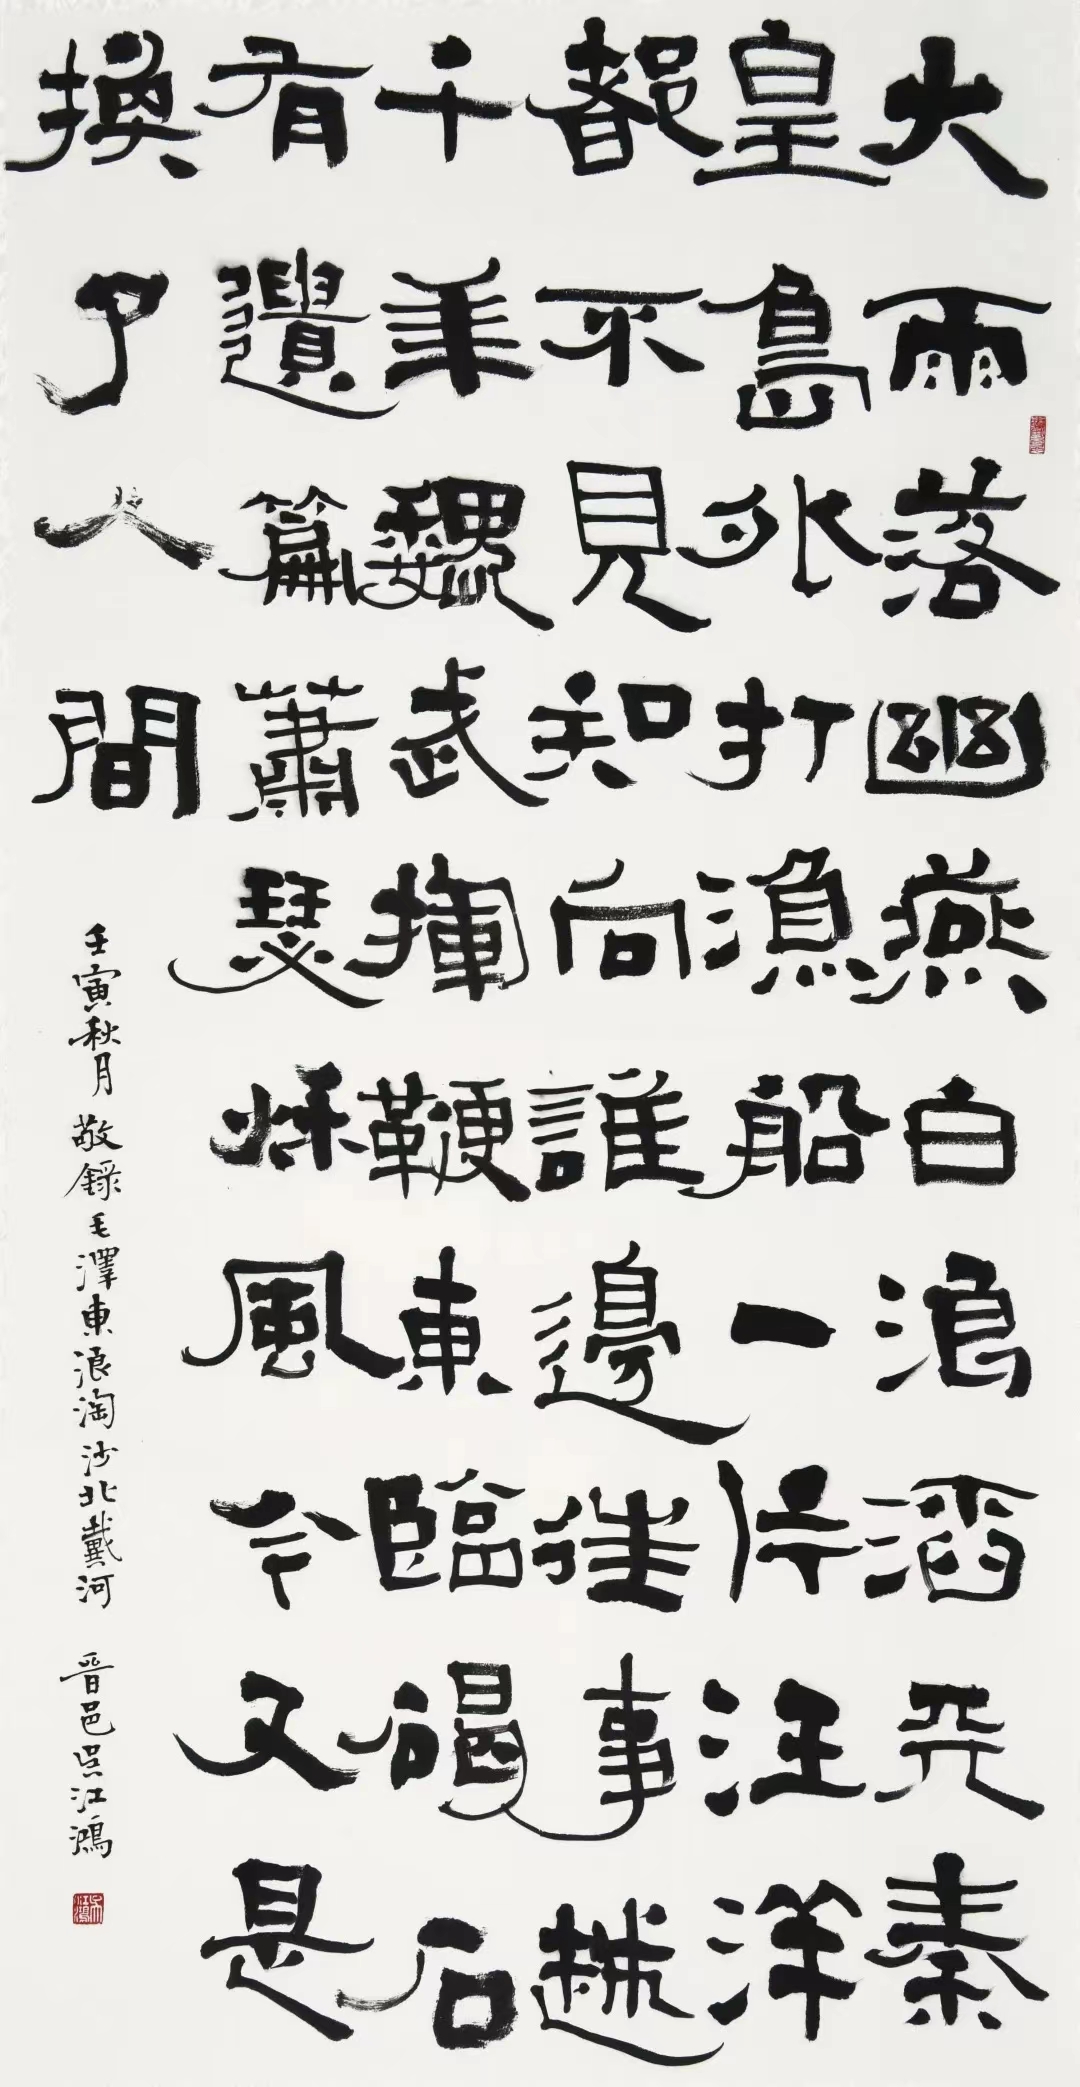 大雨落幽燕白浪滔天秦
皇島外打漁船一片汪洋
都不見知向誰邊往事越
千年魏武揮鞭東臨碣石
有遺篇蕭瑟秋風今又是
換了人間
壬寅秋月敬錄毛澤東浪淘沙北戴河 晉邑吳江鴻